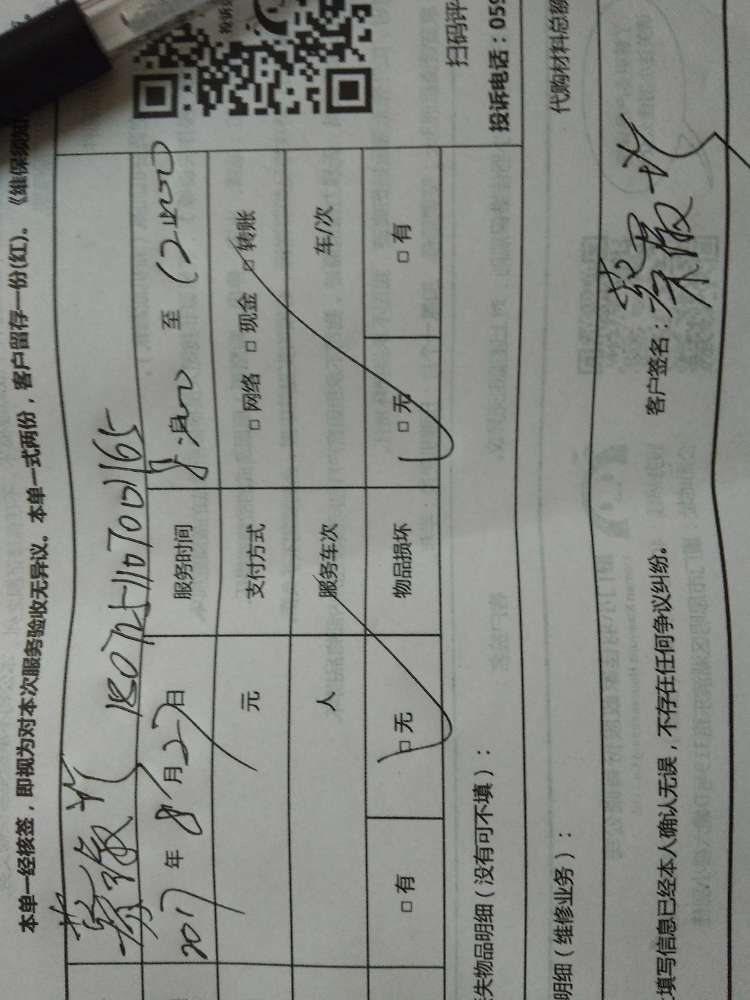 本单一经核签，即视为对本次服务验收无异议。本单一式两份，客户留存一份(红)。《维保须知
2017 年 8 月 27 日 服务时间 至
元 支付方式 □ 网络 □ 现金 □ 转账
人 服务车次 车/次
□ 有 □ 无 物品损坏 □ 无 □ 有
失物品明细（没有可不填）：
扫码评
投诉电话：059
明细（维修业务）：
代购材料总额
客户签名：
填写信息已经本人确认无误，不存在任何争议纠纷。